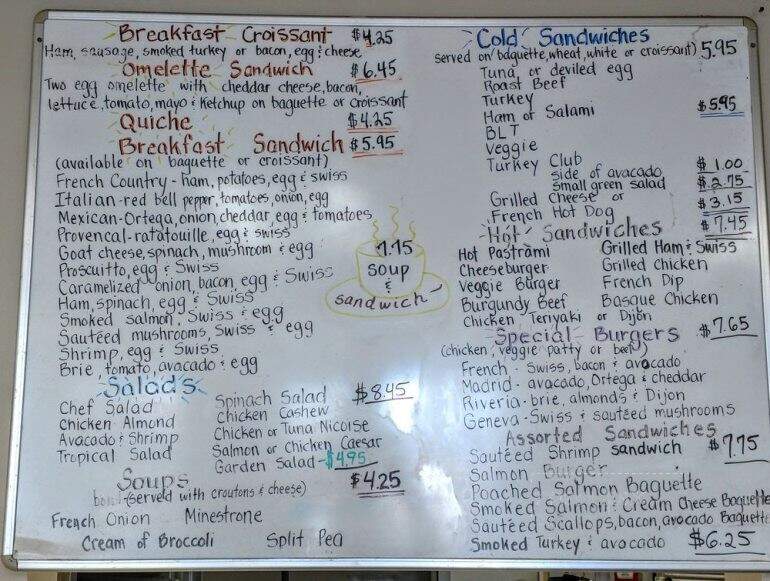 Breakfast Croissant $4.25
Ham, sausage, smoked turkey or bacon, egg & cheese
Omelette Sandwich $6.45
Two egg omelette with cheddar cheese, bacon,
lettuce, tomato, mayo & Ketchup on baguette or croissant
Quiche $4.25
Breakfast Sandwich $5.95
(available on baguette or croissant)
French Country - ham, potatoes, egg & swiss
Italian - red bell pepper, tomatoes, onion, egg
Mexican - Ortega, onion, cheddar, egg & tomatoes
Provencal - ratatouille, egg & swiss
Goat cheese, spinach, mushroom & egg
Proscuitto, egg & Swiss
Caramelized onion, bacon, egg & Swiss
Ham, spinach, egg & Swiss
Smoked salmon, Swiss & egg
Sautéed mushrooms, Swiss & egg
Shrimp, egg & Swiss
Brie, tomato, avocado & egg
7.15
soup
&
sandwich
Salads $8.45
Chef Salad
Chicken Almond
Avacado & Shrimp
Tropical Salad
Spinach Salad
Chicken Cashew
Chicken or Tuna Nicoise
Salmon or Chicken Caesar
Garden Salad - $4.95
Soups $4.25
(served with croutons & cheese)
French Onion Minestrone
Cream of Broccoli Split Pea
Cold Sandwiches
served on baguette, wheat, white or croissant) 5.95
Tuna or deviled egg
Roast Beef
Turkey
Ham or Salami $5.95
BLT
Veggie
Turkey Club
side of avacado $1.00
small green salad $2.75
Grilled Cheese or $3.15
French Hot Dog
Hot Sandwiches $7.45
Hot Pastrami
Cheeseburger
Veggie Burger
Burgundy Beef
Chicken Teriyaki or Dijon
Grilled Ham & Swiss
Grilled Chicken
French Dip
Basque Chicken
Special Burgers $7.65
(chicken, veggie patty or beef)
French - Swiss, bacon & avocado
Madrid - avacado, Ortega & cheddar
Riveria - brie, almonds & Dijon
Geneva - Swiss & sautéed mushrooms
Assorted Sandwiches $7.75
Sautéed Shrimp sandwich
Salmon Burger
Poached Salmon Baguette
Smoked Salmon & Cream Cheese Baguette
Sautéed Scallops, bacon, avocado Baguette
Smoked Turkey & avocado $6.25